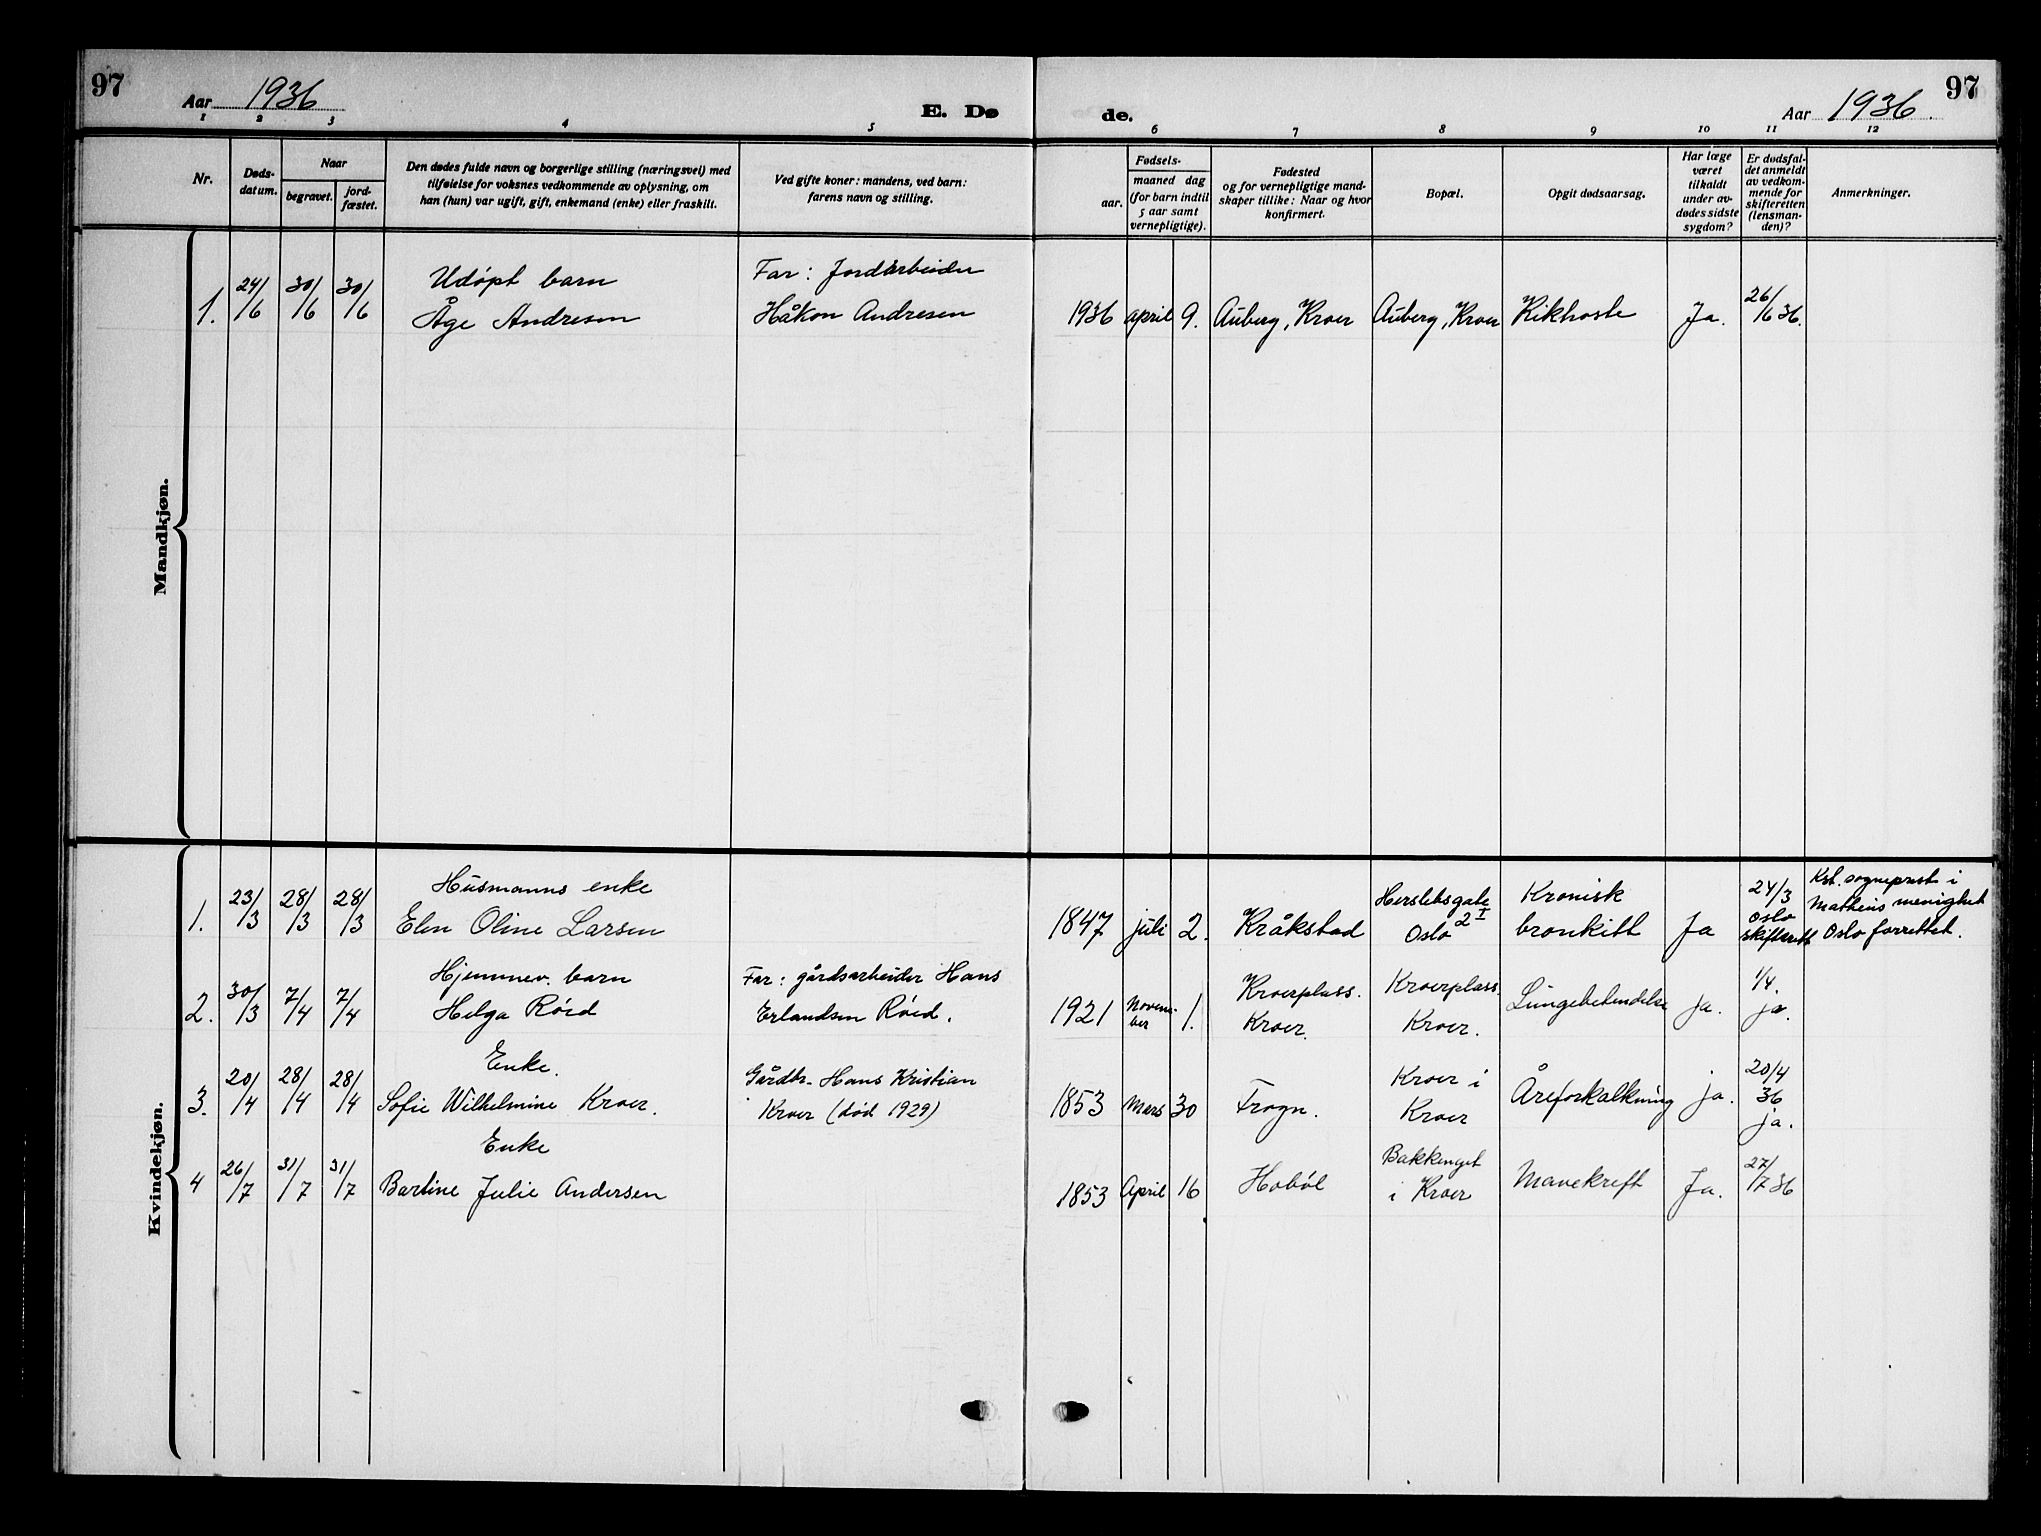 97
Aar 1936
E. Dø
de.
Aar 1936
97
1 2 3 4 5 6 7 8 9 10 11 12
Nr.
Døds-
datum.
Naar
begravet.
jord-
fæstet.
Den dødes fulde navn og borgerlige stilling (næringsvei) med
tilføielse for voksnes vedkommende av oplysning, om
han (hun) var ugift, gift, enkemand (enke) eller fraskilt.
Ved gifte koner: mandens, ved barn:
farens navn og stilling.
Fødsels-
aar.
maaned dag
(for barn indtil
5 aar samt
vernepligtige).
Fødested
og for vernepligtige mand-
skaper tillike: Naar og hvor
konfirmert.
Bopæl.
Opgit dødsaarsag.
Har læge
været
tilkaldt
under av-
dødes sidste
sygdom?
Er dødsfal-
det anmeldt
av vedkom-
mende for
skifteretten
(lensman-
den)?
Anmerkninger.
Mandkjøn.
1.
24/6
30/6
30/6
Udøpt barn
Åge Andresen
Far: Jordarbeider
Håkon Andresen
1936 april 9. Auberg, Kroer Auberg, Kroer Kikhoste Ja.
26/6 36.
Kvindekjøn.
1.
23/3
28/3
28/3
Husmanns enke
Elen Oline Larsen
1847 juli 2. Kråkstad
Herslebsgate
2 I
Oslo
Kronisk
bronkitt
Ja
24/3
Oslo
skifterett
Kst. sogneprest i
Matheus menighet
Oslo forrettet.
2.
30/3
7/4
7/4
Hjemmev. barn
Helga Röed
Far: gårdsarbeider Hans
Erlandsen Röed.
1921
Novem-
ber
1.
Kroerplass.
Kroer.
Kroerplass
Kroer.
Lungebetendelse
ja.
1/4.
ja.
3.
20/4
28/4
28/4
Enke.
Sofie Wilhelmine Kroer.
Gårdbr. Hans Kristian
Kroer (död 1929)
1853 Mars 30 Frogn.
Kroer i
Kroer
Åreforkalkning
ja.
20/4
36
ja.
4
26/7
31/7
31/7
Enke
Bartine Julie Andersen
1853 April 16 Hobøl
Bakkenget
i Kroer
Mavekreft
Ja.
27/7 36